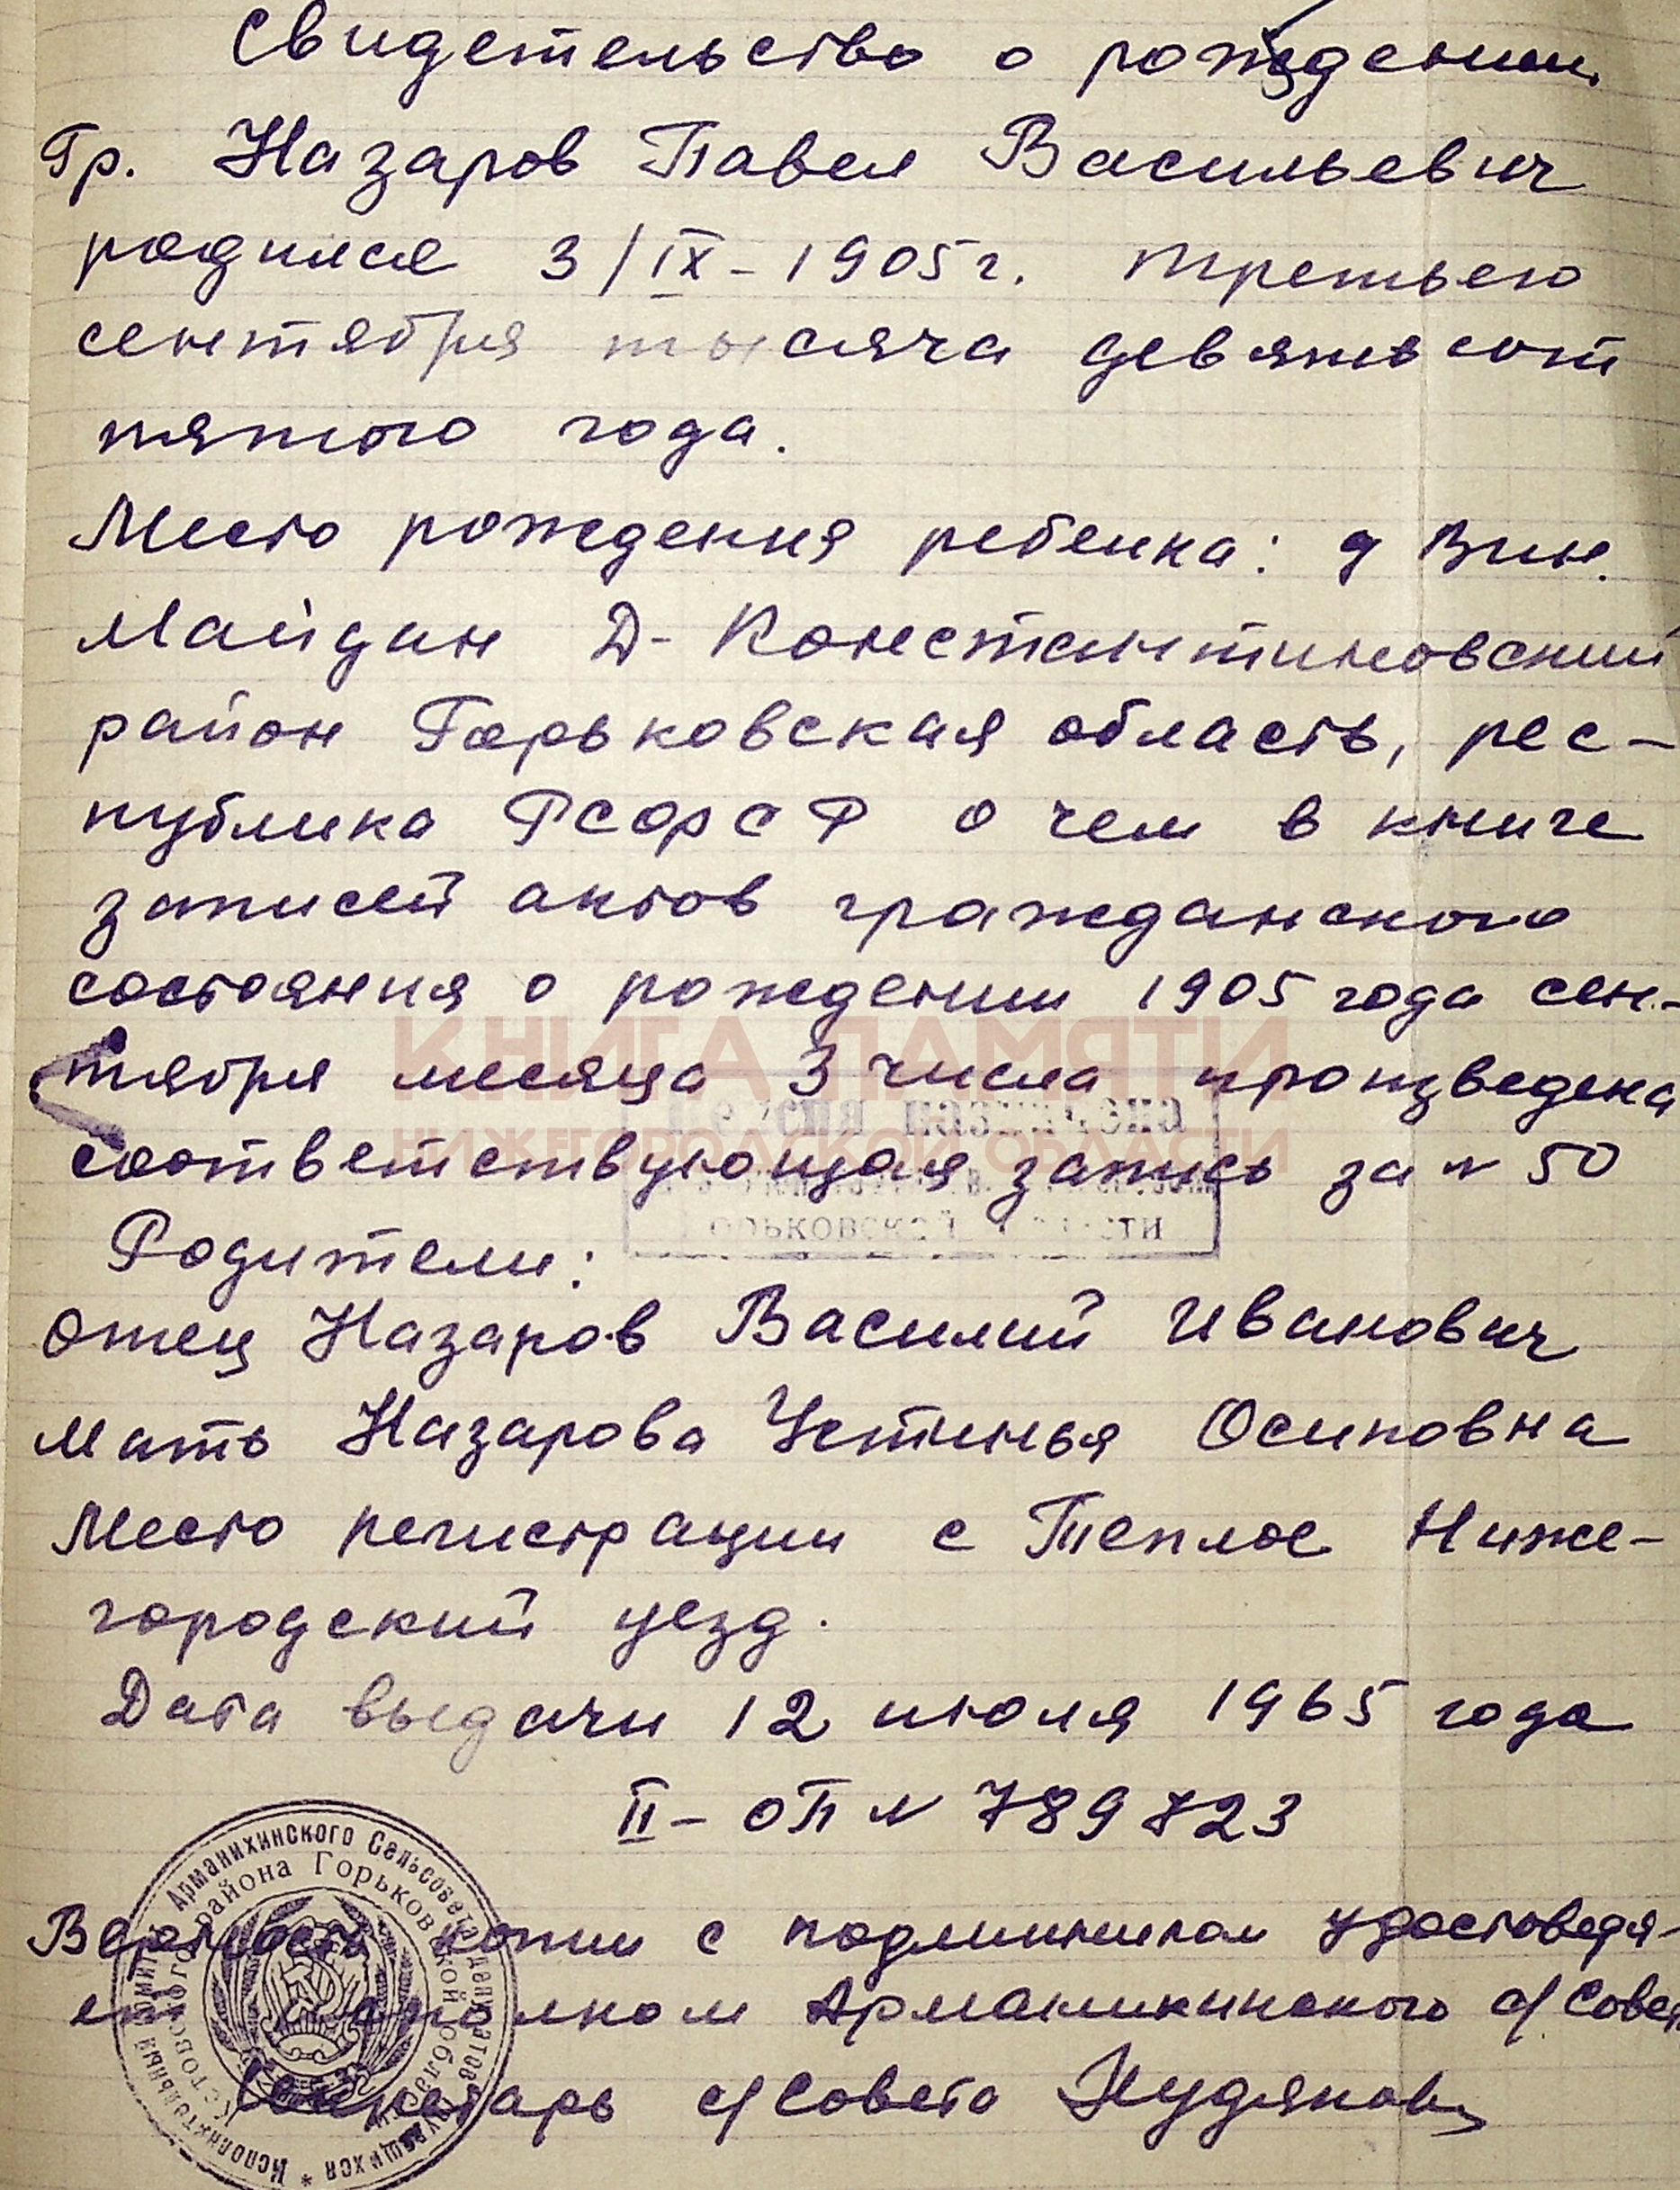 Свидетельство о рождении
Гр. Назаров Павел Васильевич
родился 3/IX-1905г. третьего
сентября тысяча девятьсот
пятого года.
Место рождения ребенка: д Вин.
Майдан Д-Константиновский
район Горьковская область, рес-
публика РСФСР о чем в книге
записей актов гражданского
состояния о рождении 1905 года сен-
тября месяца 3 числа произведена
соответствующая запись за N 50
КНИГА ПАМЯТИ
НИЖЕГОРОДСКОЙ ОБЛАСТИ
Родители:
Отец Назаров Василий Иванович
Мать Назарова Устинья Осиповна
Место регистрации с Теплое Ниже-
городский уезд.
Дата выдачи 12 июля 1965 года
II-ОП N 789723
Верность копии с подлинником удостоверя-
ет исполком Арманихинского с/Совет
Секретарь с/Совета
Исполнительный комитет Арманихинского Сельсовета депутатов трудящихся *
Кстовского района Горьковской области